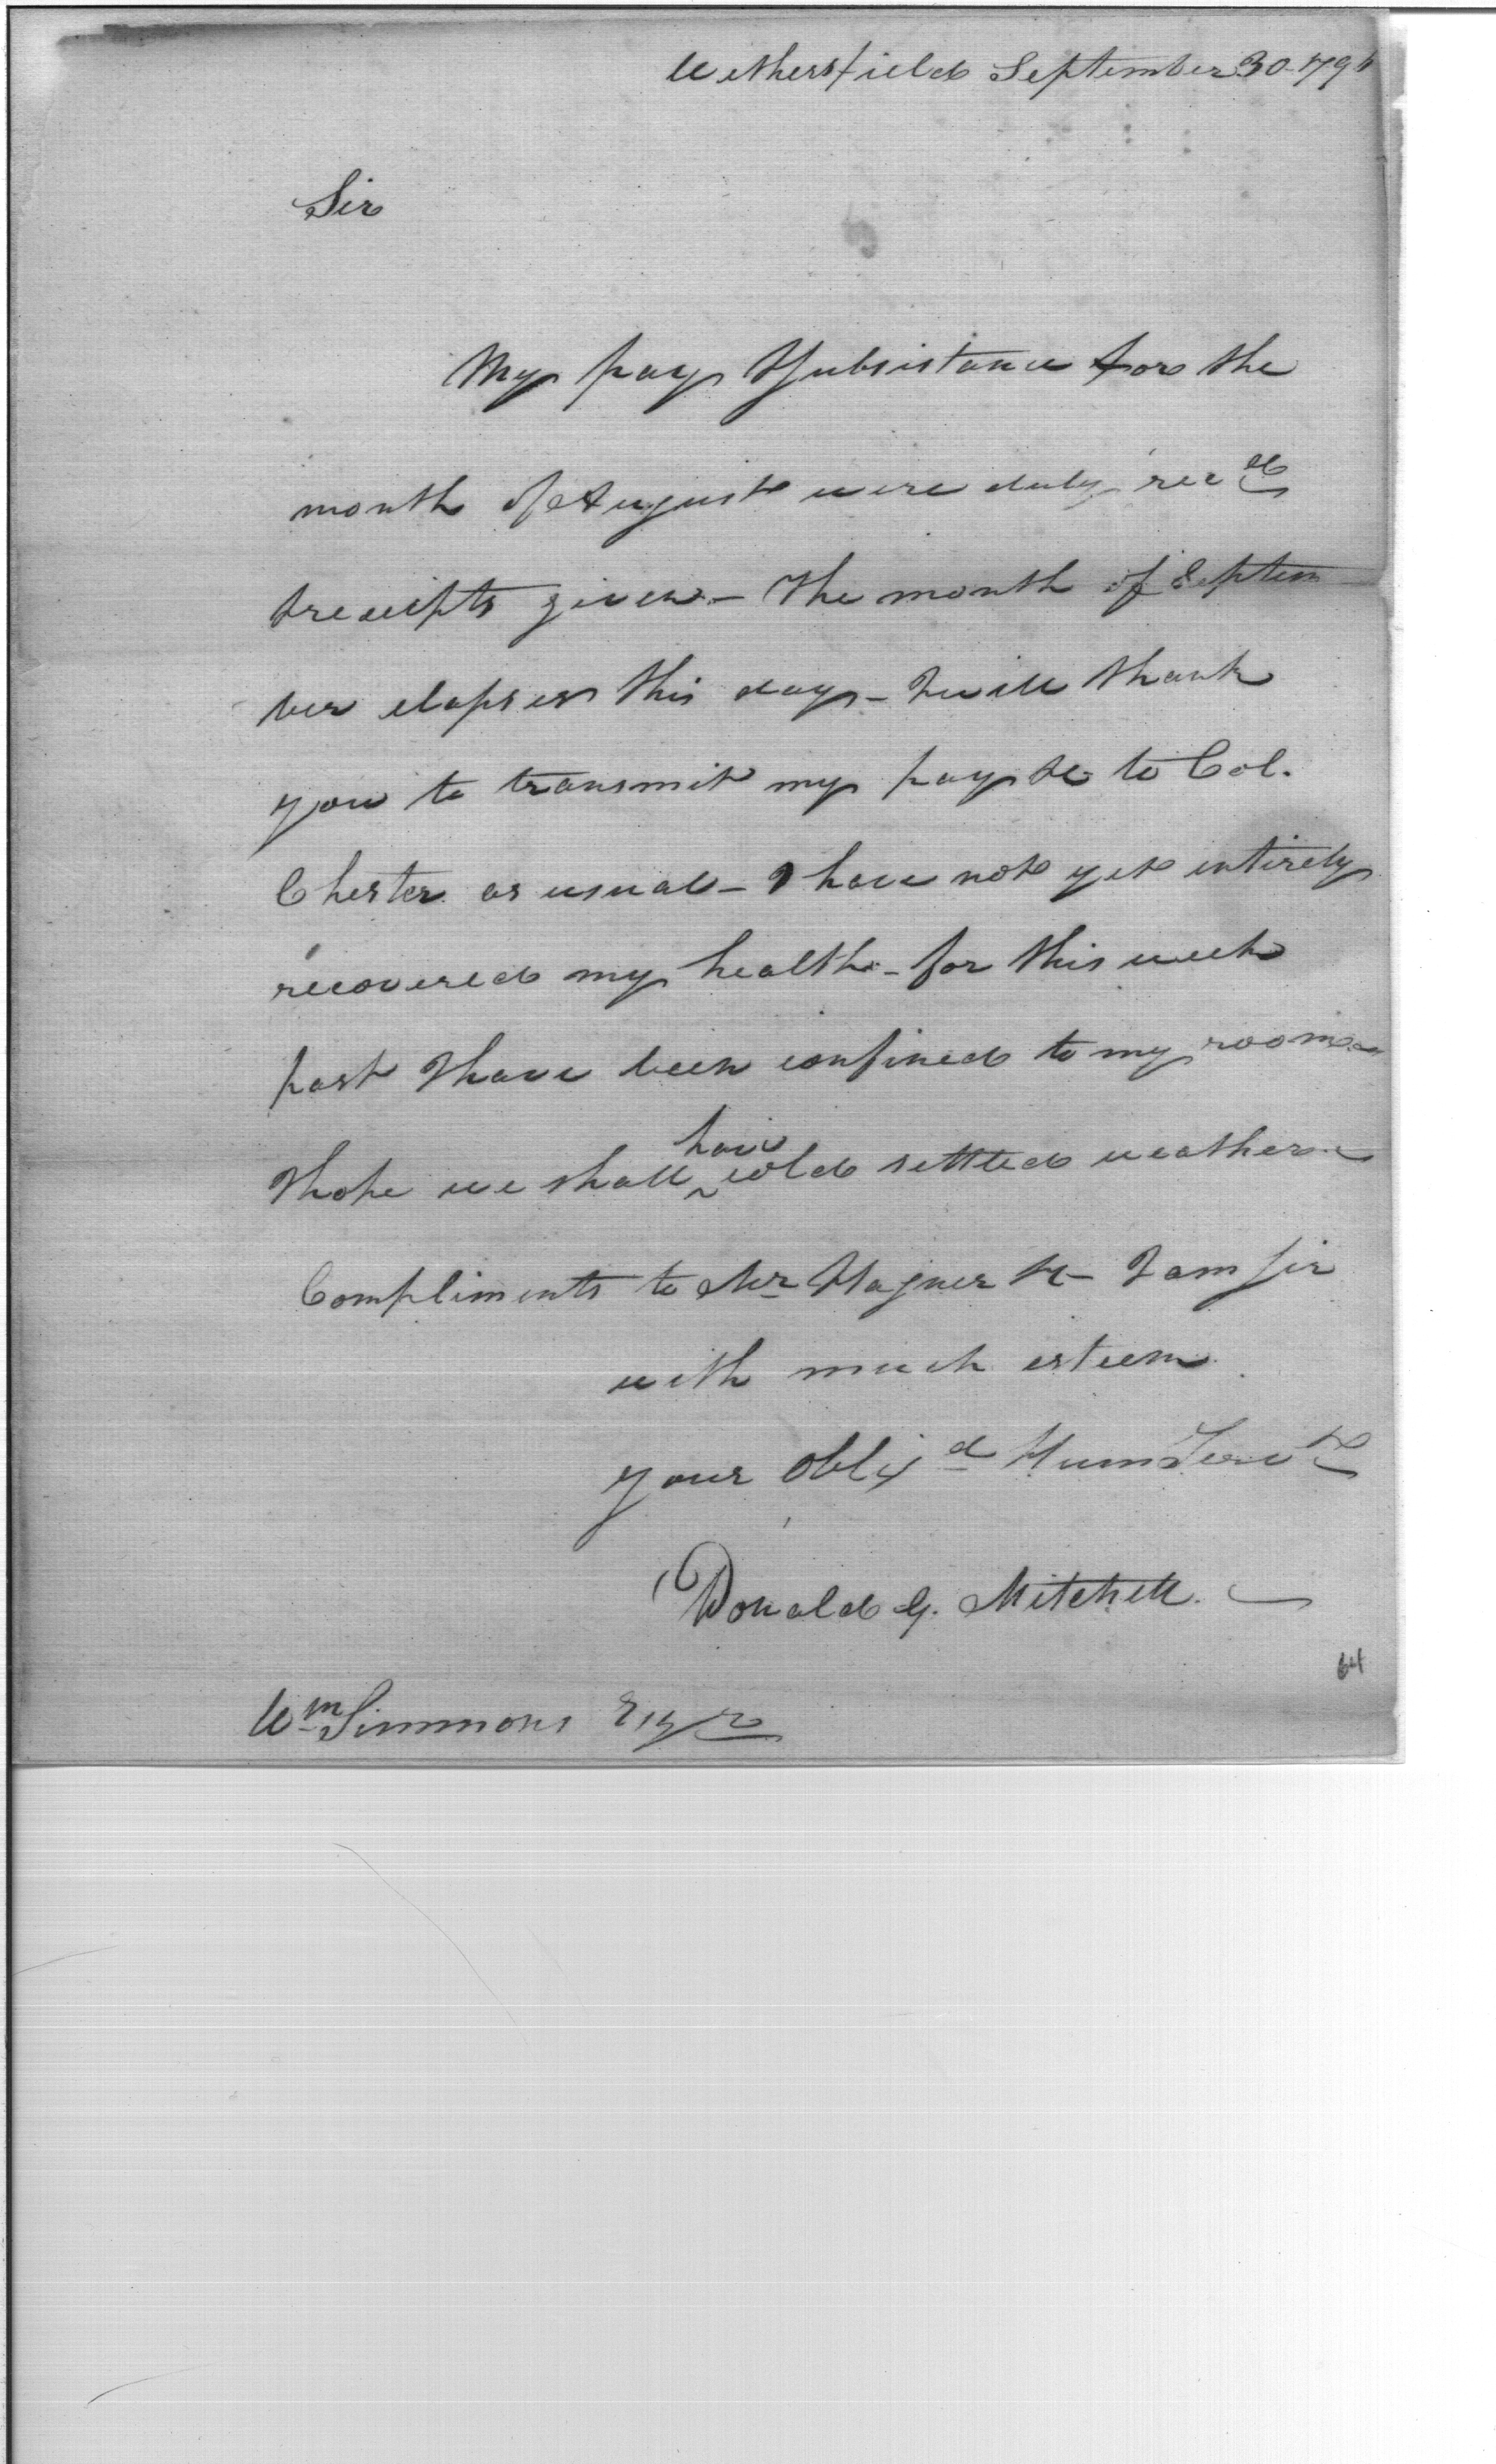 Wethersfield September 30 179
Sir
My pay & subsistance for the
month of August were duly rec.d
& receipts given - The month of Septem
ber elapses this day - I will thank
you to transmit my pay &c to Col.
Chester as usual - I have not yet entirely
recovered my health - for this week
past I have been confined to my room -
I hope we shall have cold settled weather -
Compliments to Mr Hagner &c - I am sir
with much esteem
your oblig.d Hum Serv.t
Donald G. Mitchell.
64
Wm Simmons Esqr